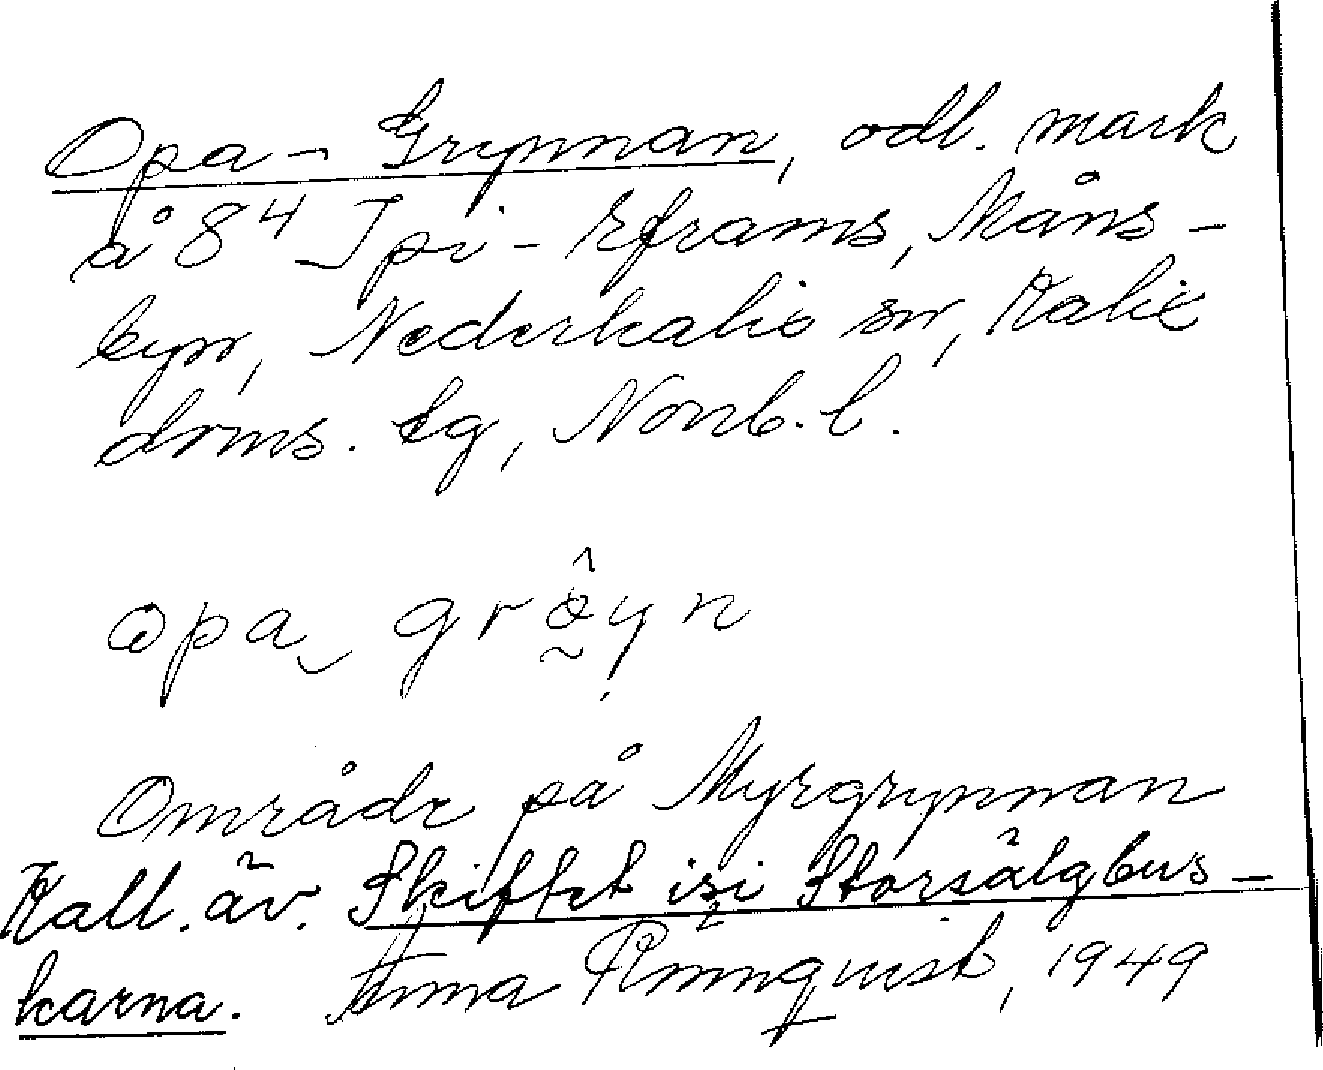 Opa-Grynnan, odl. mark
å 8⁴ Jpi-Eframs, Måns-
byn, Nederkalix sn, Kalix
doms. tg, Norrb. l.
opa grö̂yn
Område på Myrgrynnan
Kall. äv. Skiftet isi Storsälgbus-
karna. Anna Rönnqvist, 1949